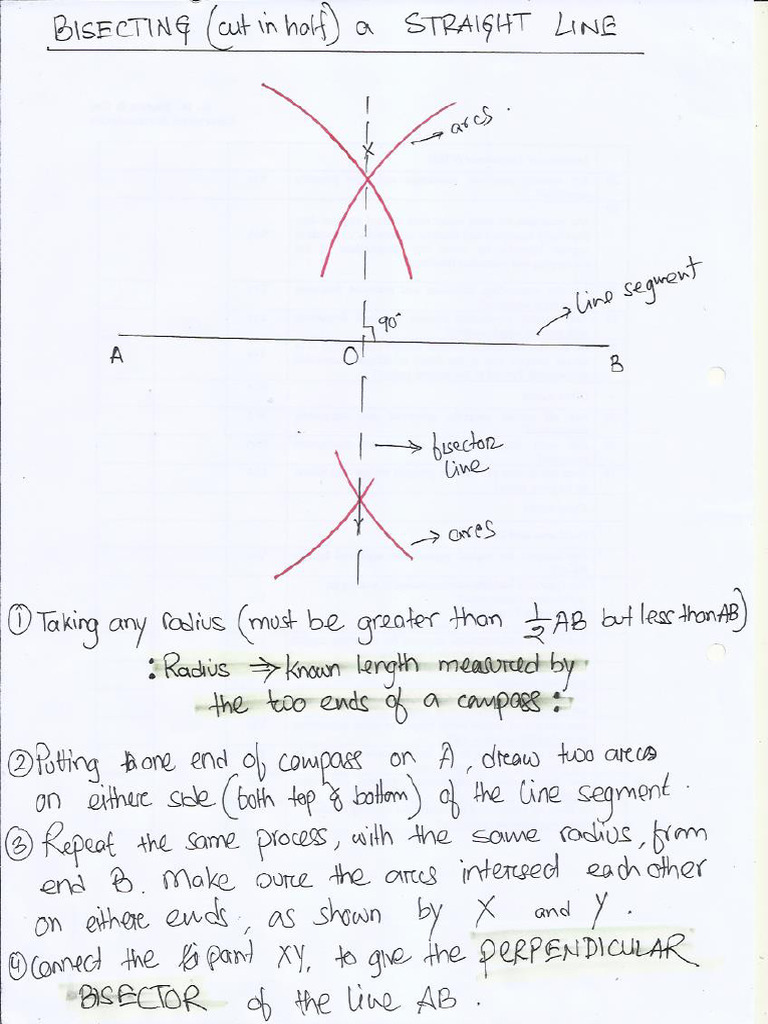 BISECTING (cut in half) a STRAIGHT LINE
arcs.
X
line segment
90°
A
O
B
bisector line
Y
arcs
① Taking any radius (must be greater than 1/2 AB but less than AB)
: Radius ⇒ known length measured by
the two ends of a compass :
② Putting one end of compass on A, draw two arcs
on either side (both top & bottom) of the line segment.
③ Repeat the same process, with the same radius, from
end B. Make sure the arcs intersect each other
on either ends, as shown by X and Y.
④ Connect the point XY, to give the PERPENDICULAR
BISECTOR of the line AB.